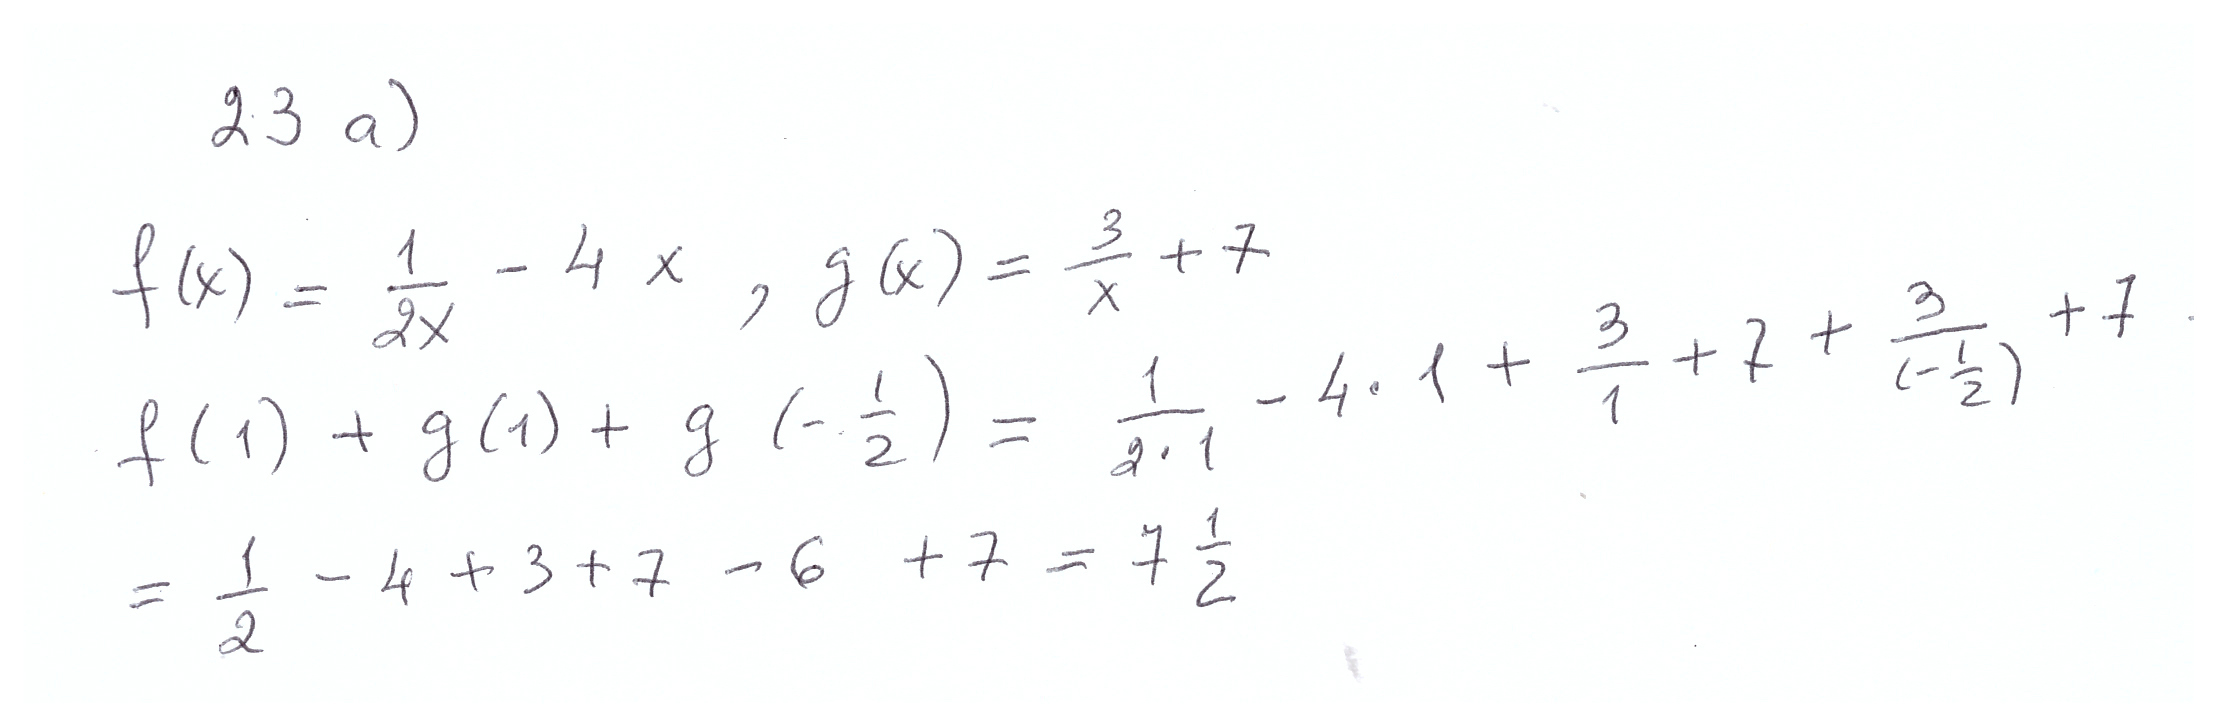 23 a)
f(x) = 1/2x - 4x, g(x) = 3/x + 7
f(1) + g(1) + g(-1/2) = 1/2·1 - 4·1 + 3/1 + 7 + 3/(-1/2) + 7
= 1/2 - 4 + 3 + 7 - 6 + 7 = 7 1/2